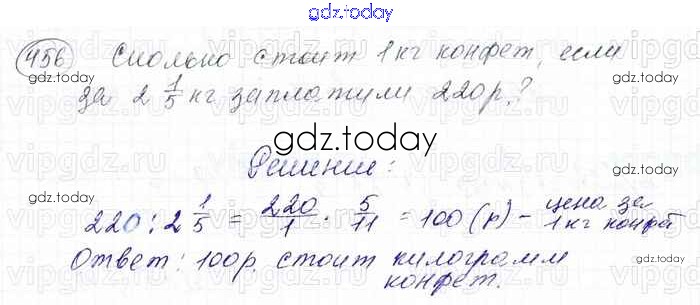 gdz.today
456 Сколько стоит 1 кг конфет, если
gdz.today gdz.today
за 2 1/5 кг заплатили 220 р.?
gdz.today
Решение:
gdz.today gdz.today
220 : 2 1/5 = 220/1 · 5/11 = 100 (р) – цена за 1 кг конфет
Ответ: 100 р. стоит килограмм
конфет.
gdz.today gdz.today